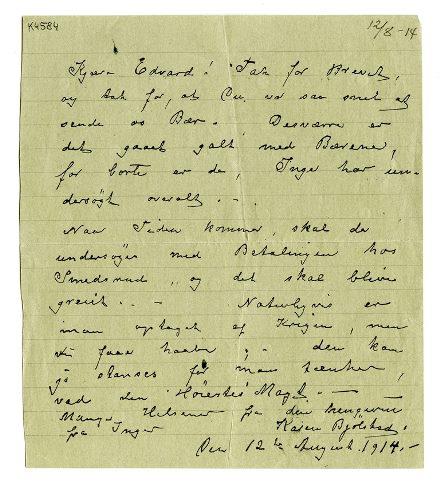 K4584
12/8-14
Kjære Edvard! Tak for Brevet,
og tak for, at Du var saa snil at
sende os Bær. Desværre er
det gaaet galt med Bærene,
for borte er de, Inger har un-
dersøgt overalt. - . -
Naar Tiden kommer, skal de
undersøges med Betalingen hos
Smedsrud, og det skal blive
greiit. - - Naturligvis er
man optaget af Krigen, men
vi faar haabe, - den kan
gå stanses før man tænker,
ved den Høiestes Magt. -
Mange Hilsener fra din hengivne
fra Inger Karen Bjølstad.
Den 12te August. 1914. -